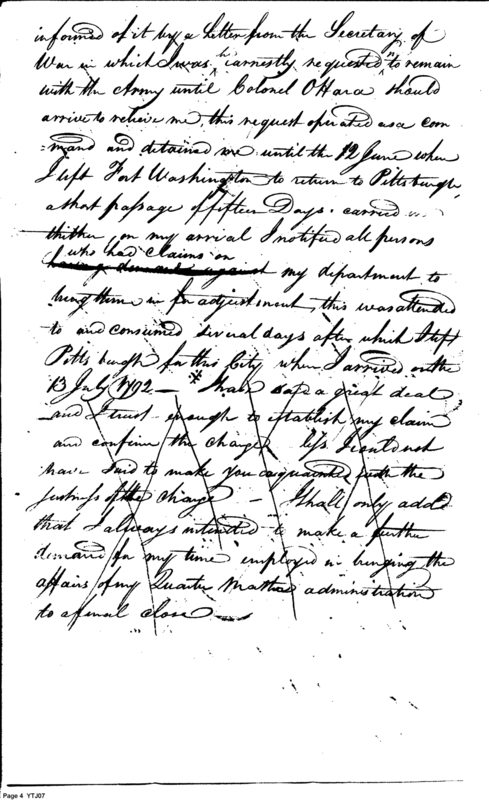 informed of it by a Letter from the Secretary of
War in which I was earnestly requested to remain
with the Army until Colonel OHara should
arrive to relieve me, this request operated as a com
=mand and detained me until the 12 June when
I left Fort Washington to return to Pittsburgh,
a short passage of fifteen Days carried
thither, on my arrival I notified all persons
who had claims on
having demands against my department to
bring them in for adjustment, this was attended
to and consumed several days after which I left
Pittsburgh for this City when I arrived on the
13 July 1792 — * I have said a great deal
and I trust enough to establish my claim
and confirm the charge, less I could not
have said to make you acquainted with the
justness of the charge — I shall only add
that I always intended to make a further
demand for my time employed in bringing the
affairs of my Quarter Master administration
to a final close —
Page 4 YTJ07